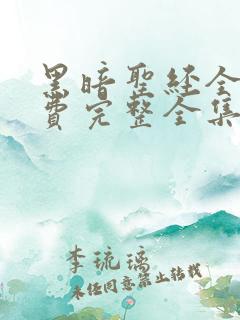 黑暗聖经全
費完整全集
李琉璃
未经同意禁止转载